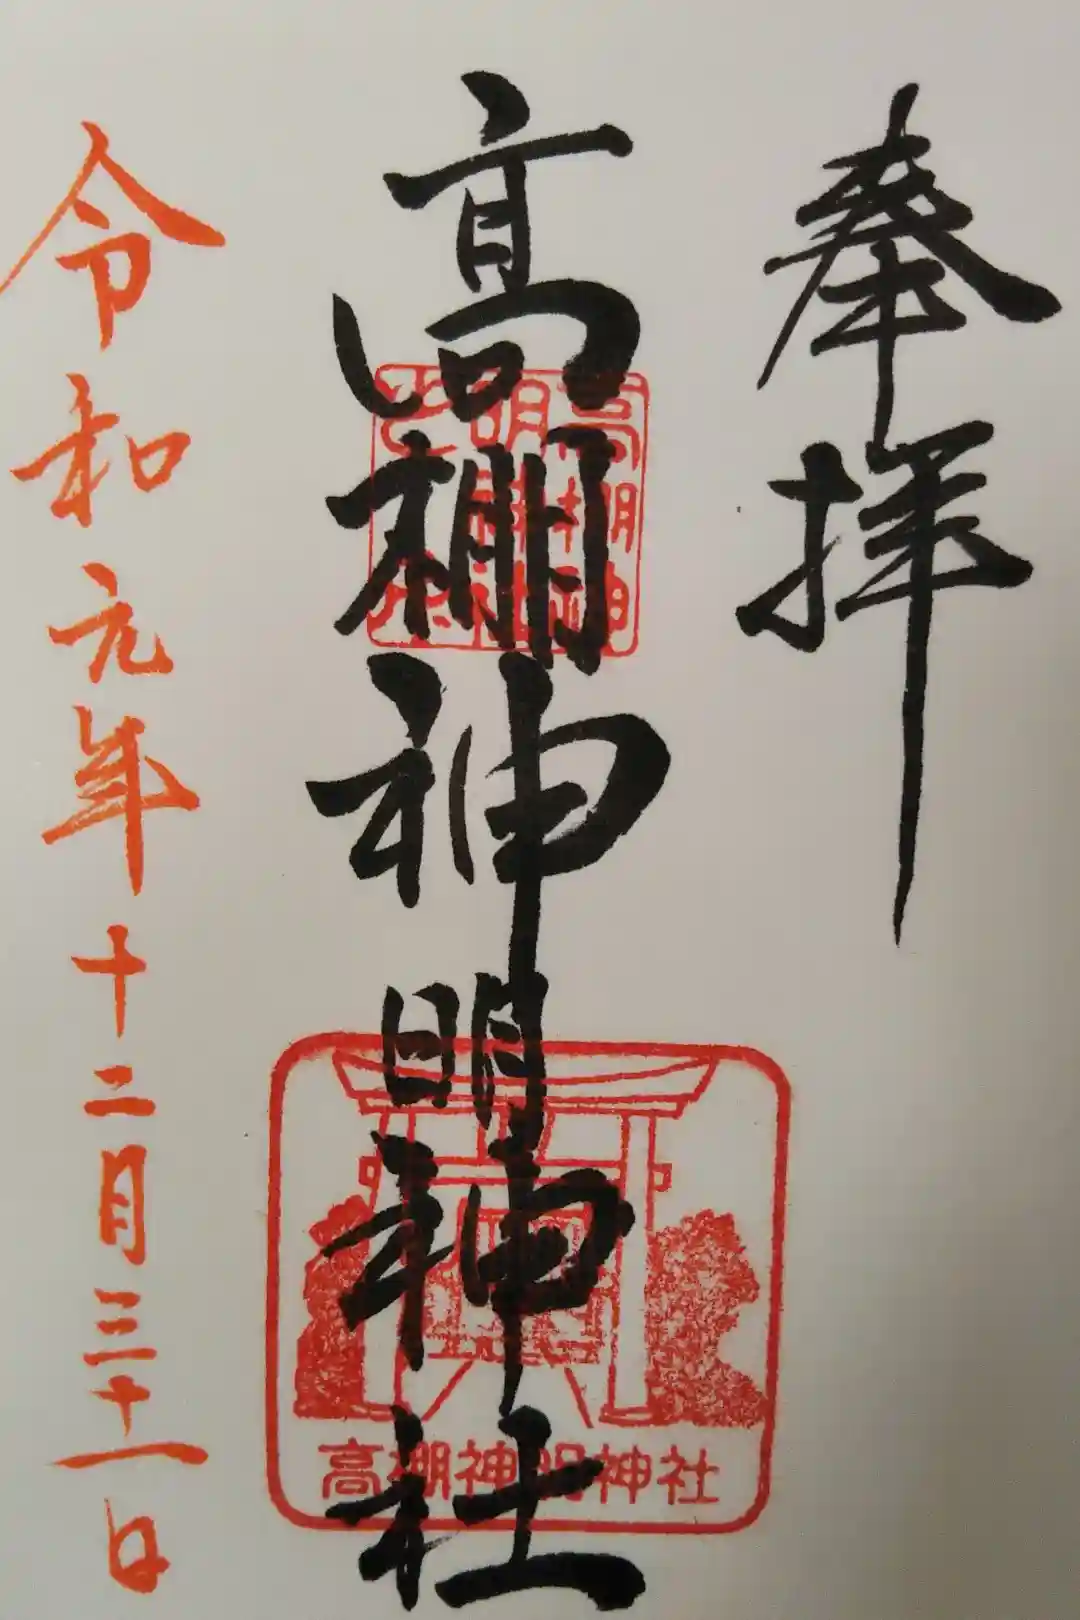 奉拝
高棚神明神社
高棚神明神社
令和元年十二月三十一日